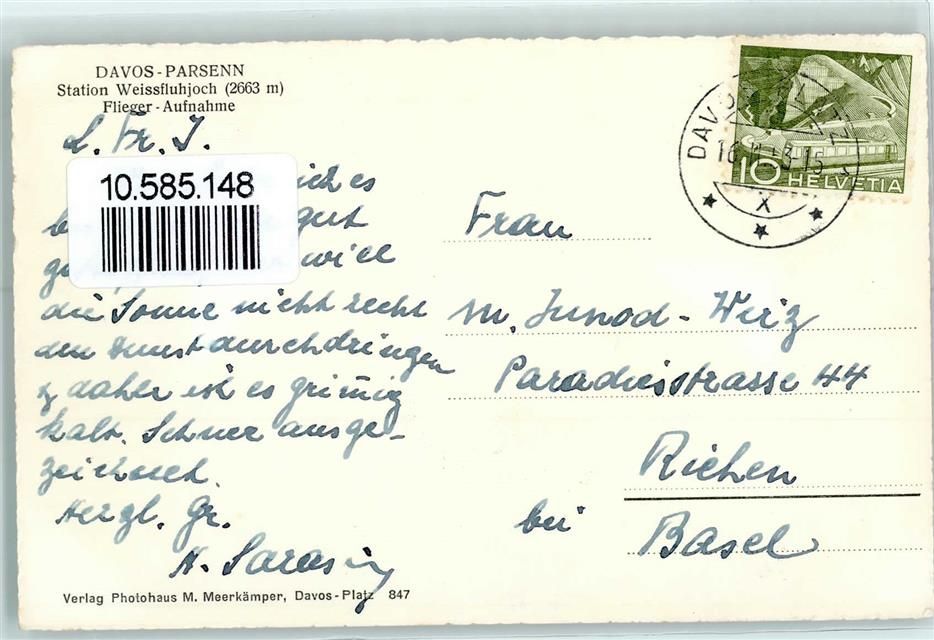 DAVOS - PARSENN
Station Weissfluhjoch (2663 m)
Flieger - Aufnahme
L. Fr. J.
10.585.148
ich es
gut
will
die Sonne nicht recht
den Dunst durchdringen
daher ist es grimmig
kalt. Schnee ausge-
zeichnet.
Herzl. Gr.
H. Sarasin
Verlag Photohaus M. Meerkämper, Davos - Platz 847
DAVOS PLATZ
16. 15
X
10 HELVETIA
Frau
M. Junod - Wirz
Paradiesstrasse 44
Riehen
bei Basel